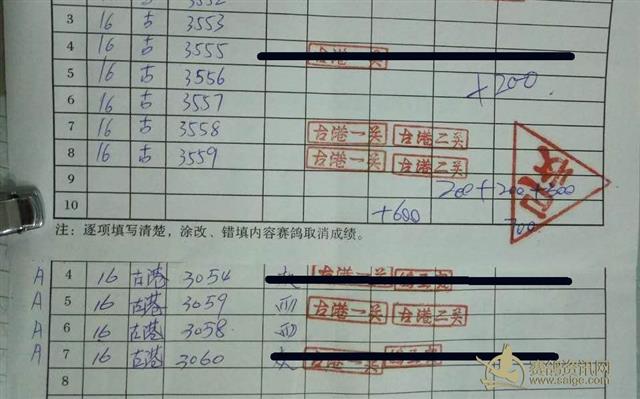 3552
3 16 古 3553
4 16 古 3555 古港一关
5 16 古 3556 +200.
6 16 古 3557
7 16 古 3558 古港一关 古港二关
8 16 古 3559 古港一关 古港二关
9 200+200+300
10 +600 700
注：逐项填写清楚，涂改、错填内容赛鸽取消成绩。
A 4 16 古港 3054 灰 古港一关
A 5 16 古港 3059 古港一关 古港二关
A 6 16 古港 3058
A 7 16 古港 3060 灰 古港一关
8
赛鸽资讯网
www.saige.com